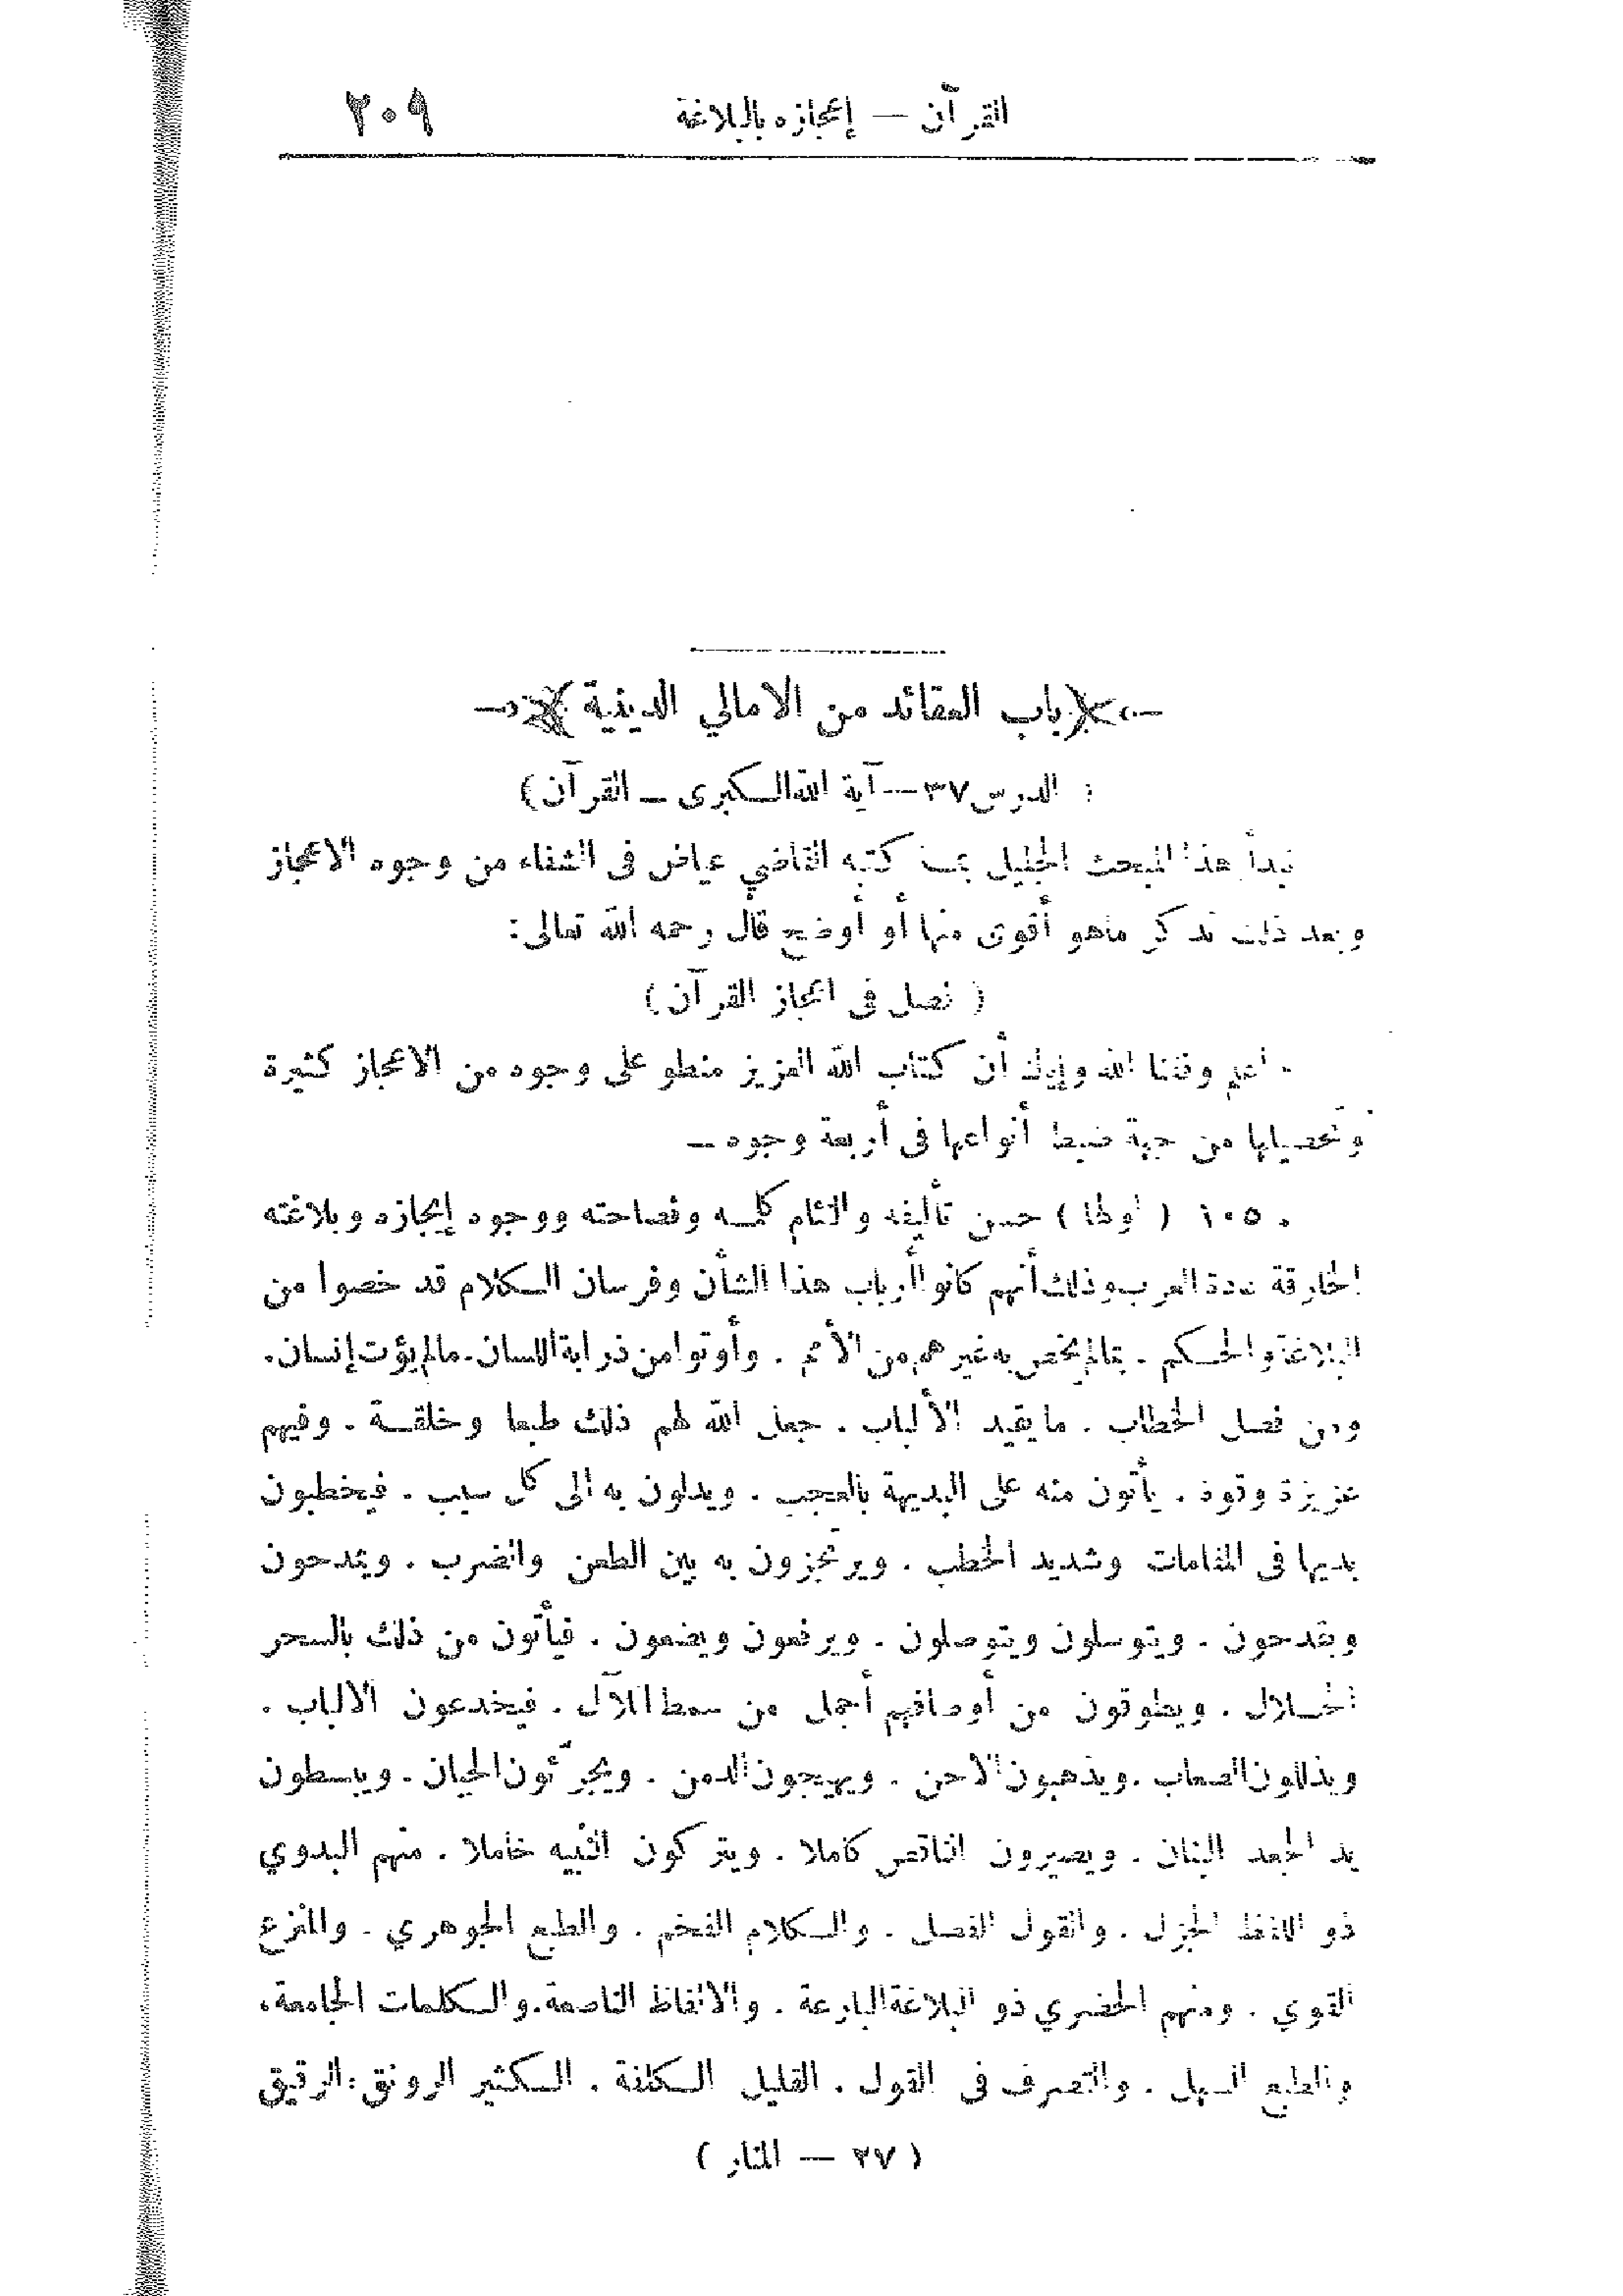 القرآن — إعجازه بالبلاغة ٢٠٩
باب العقائد من الامالي الدينية
( الدرس ٣٧ — آية الله الكبرى – القرآن )
نبدأ هذا المبحث الجليل بما كتبه القاضي عياض في الشفاء من وجوه الاعجاز
وبعد ذلك نذكر ماهو أقوى منها أو أوضح قال رحمه الله تعالى:
( فصل في اعجاز القرآن )
اعلم وفقنا الله وإياك أن كتاب الله العزيز منطو على وجوه من الاعجاز كثيرة
وتحصيلها من جهة ضبط أنواعها في أربعة وجوه –
١٠٥ ( أولها ) حسن تأليفه والتئام كلمه وفصاحته ووجوه إيجازه وبلاغته
الخارقة عادة العرب وذلك أنهم كانوا أرباب هذا الشأن وفرسان الكلام قد خصوا من
البلاغة والحكم . بمالم يخص به غيرهم من الأمم . وأوتوا من ذرابة اللسان . مالم يؤت إنسان .
ومن فصل الخطاب . ما يقيد الألباب . جعل الله لهم ذلك طبعا وخلقة . وفيهم
غريزة وقوة . يأتون منه على البديهة بالعجب . ويدلون به الى كل سبب . فيخطبون
بديها في المقامات وشديد الخطب . ويرتجزون به بين الطعن والضرب . ويمدحون
ويقدحون . ويتوسلون ويتوصلون . ويرفعون ويضعون . فيأتون من ذلك بالسحر
الحلال . ويطوقون من أوصافهم أجمل من سمط اللآل . فيخدعون الالباب .
ويذللون الصعاب . ويذهبون الاحن . ويهيجون الدمن . ويجرّئون الجبان . ويبسطون
يد الجعد البنان . ويصيرون الناقص كاملا . ويتركون النبيه خاملا . منهم البدوي
ذو اللفظ الجزل . والقول الفصل . والكلام الفخم . والطبع الجوهري . والمنزع
القوي . ومنهم الحضري ذو البلاغة البارعة . والالفاظ الناصعة . والكلمات الجامعة .
والطبع السهل . والتصرف في القول . القليل الكلفة . الكثير الرونق . الرقيق
( ٢٧ — المنار )